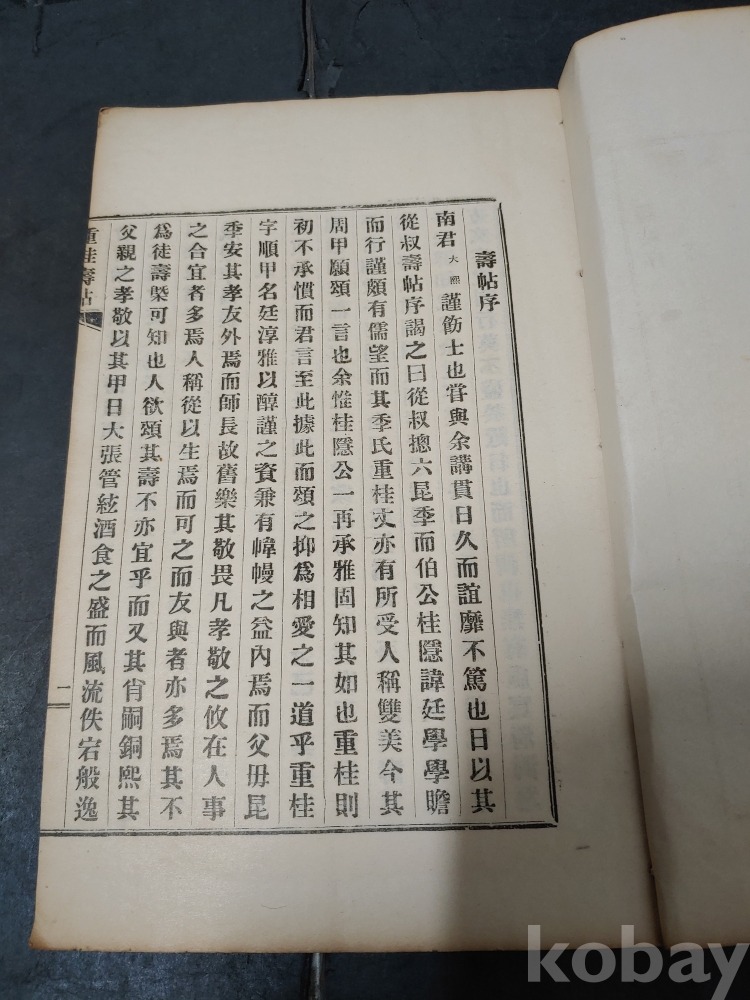 壽帖序
南君大熙謹飭士也甞與余講貫日久而誼靡不篤也日以其
從叔壽帖序謁之曰從叔摠六昆季而伯公桂隱諱廷學學贍
而行謹頗有儒望而其季氏重桂丈亦有所受人稱雙美今其
周甲願頌一言也余惟桂隱公一再承雅固知其如也重桂則
初不承慣而君言至此據此而頌之抑爲相愛之一道乎重桂
字順甲名廷淳雅以醇謹之資兼有幃幔之益內焉而父毋昆
季安其孝友外焉而師長故舊樂其敬畏凡孝敬之攸在人事
之合宜者多焉人稱從以生焉而可之而友與者亦多焉其不
爲徒壽槩可知也人欲頌其壽不亦宜乎而又其肖嗣銅熙其
父親之孝敬以其甲日大張管絃酒食之盛而風流佚宕般逸
重桂壽帖
一
kobay